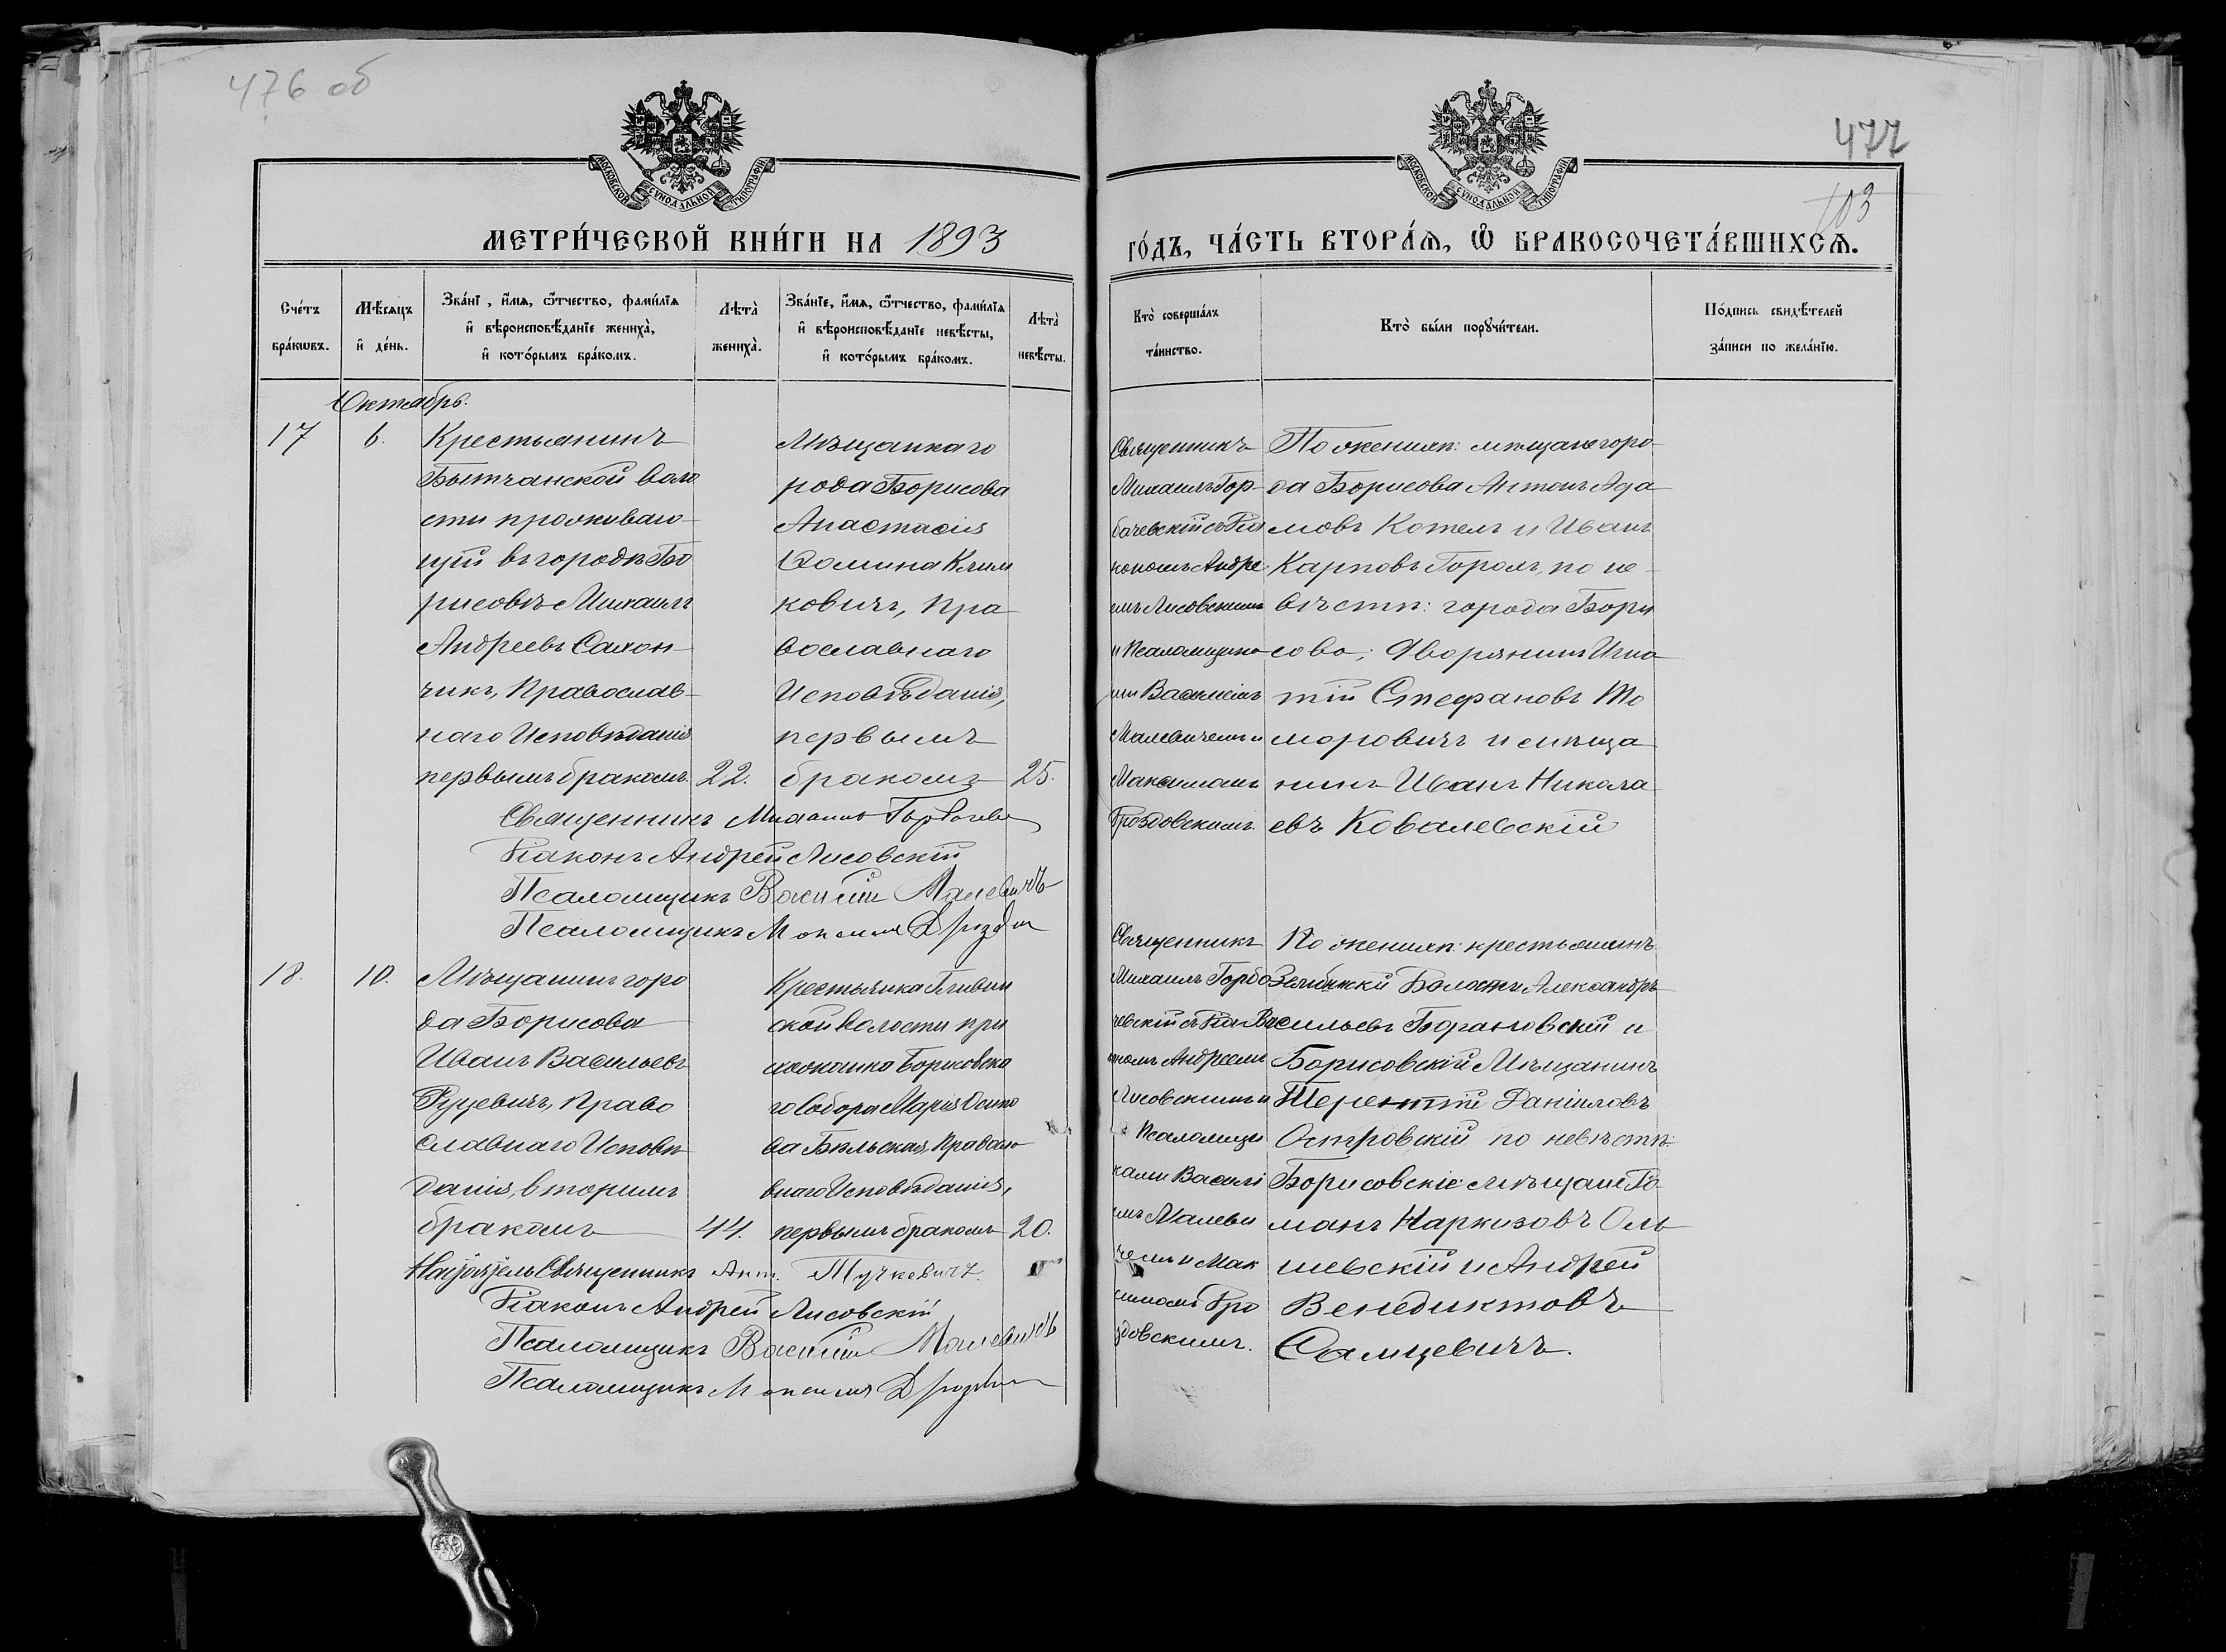 476 об
477
103
МОСКОВСКОЙ СУНОДАЛЬНОЙ ТИПОГРАФІИ
МОСКОВСКОЙ СУНОДАЛЬНОЙ ТИПОГРАФІИ
МЕТРИ́ЧЕСКОЙ КНИ́ГИ НА 1893
ГО́ДЪ, ЧА́СТЬ ВТОРА́Ѧ, Ѽ БРАКОСОЧЕТА́ВШИХСѦ.
Сче́тъ бра́кѡвъ.
Мѣ́сѧцъ и҆ де́нь.
Зва́нї, и҆́мѧ, ѻ҆́тчество, фами́лїѧ
и҆ вѣроисповѣ́данїе жениха̀,
и҆ кото́рымъ бра́комъ.
Лѣта̀ жениха̀.
Зва́нїе, и҆́мѧ, ѻ҆́тчество, фами́лїѧ
и҆ вѣроисповѣ́данїе невѣ́сты,
и҆ кото́рымъ бра́комъ.
Лѣта̀ невѣ́сты.
Кто̀ соверша́лъ та́инство.
Кто̀ бы́ли порꙋчи́тели.
По́дпись свидѣ́телей
за́писи по жела́нїю.
Октябрь.
17
6.
Крестьянинъ
Бытчанской воло
сти проживаю-
щій въ городѣ Бо
рисовѣ Михаилъ
Андреевъ Сахон-
чикъ, Православ-
наго Исповѣданія
первымъ бракомъ.
22.
Мѣщанка го
рода Борисова
Анастасія
Ѳомина Клим
ковичъ, Пра
вославнаго
Исповѣданія,
первымъ
бракомъ
25.
Священникъ
Михаилъ Гор-
бачевскій съ Діа
кономъ Андре
емъ Лисовскимъ
и Псаломщика
ми Василіемъ
Малевичемъ и
Максимомъ
Дроздовскимъ.
По женихѣ: мѣщане горо-
да Борисова Антонъ Ада
мовъ Котелъ и Иванъ
Карповъ Гороль, по не-
вѣстѣ: города Бори
сова, Дворянинъ Игна
тій Стефановъ То
моровичъ и мѣща
нинъ Иванъ Никола
евъ Ковалевскій
Священникъ Михаилъ Горбачев
Діаконъ Андрей Лисовскій
Псаломщикъ Василій Малевичъ
Псаломщикъ Максимъ Дроздов
18.
10.
Мѣщанинъ горо
да Борисова
Иванъ Васильевъ
Руцевичъ, Право
славнаго Исповѣ
данія, вторымъ
бракомъ
44.
Крестьянка Гливин
ской Волости при
хожанка Борисовска
го Собора Марія Осипо
ва Бѣльская, Правосла
внаго Исповѣданія,
первымъ бракомъ
20.
Священникъ
Михаилъ Горба
чевскій съ Діа
кономъ Андреемъ
Лисовскимъ и
Псаломщи
ками Василі
емъ Малеви
чемъ и Мак
симомъ Дро
здовскимъ.
По женихѣ: крестьянинъ
Зембинской Волости Александръ
Васильевъ Барановскій и
Борисовскій Мѣщанинъ
Терентій Даніиловъ
Островскій по невѣстѣ:
Борисовскіе мѣщане Ро-
манъ Наркизовъ Оль
шевскій и Андрей
Венедиктовъ
Самцевичъ.
Настоятель Священникъ Ант. Тучкевичъ.
Діаконъ Андрей Лисовскій
Псаломщикъ Василій Малевичъ
Псаломщикъ Максимъ Дроздов